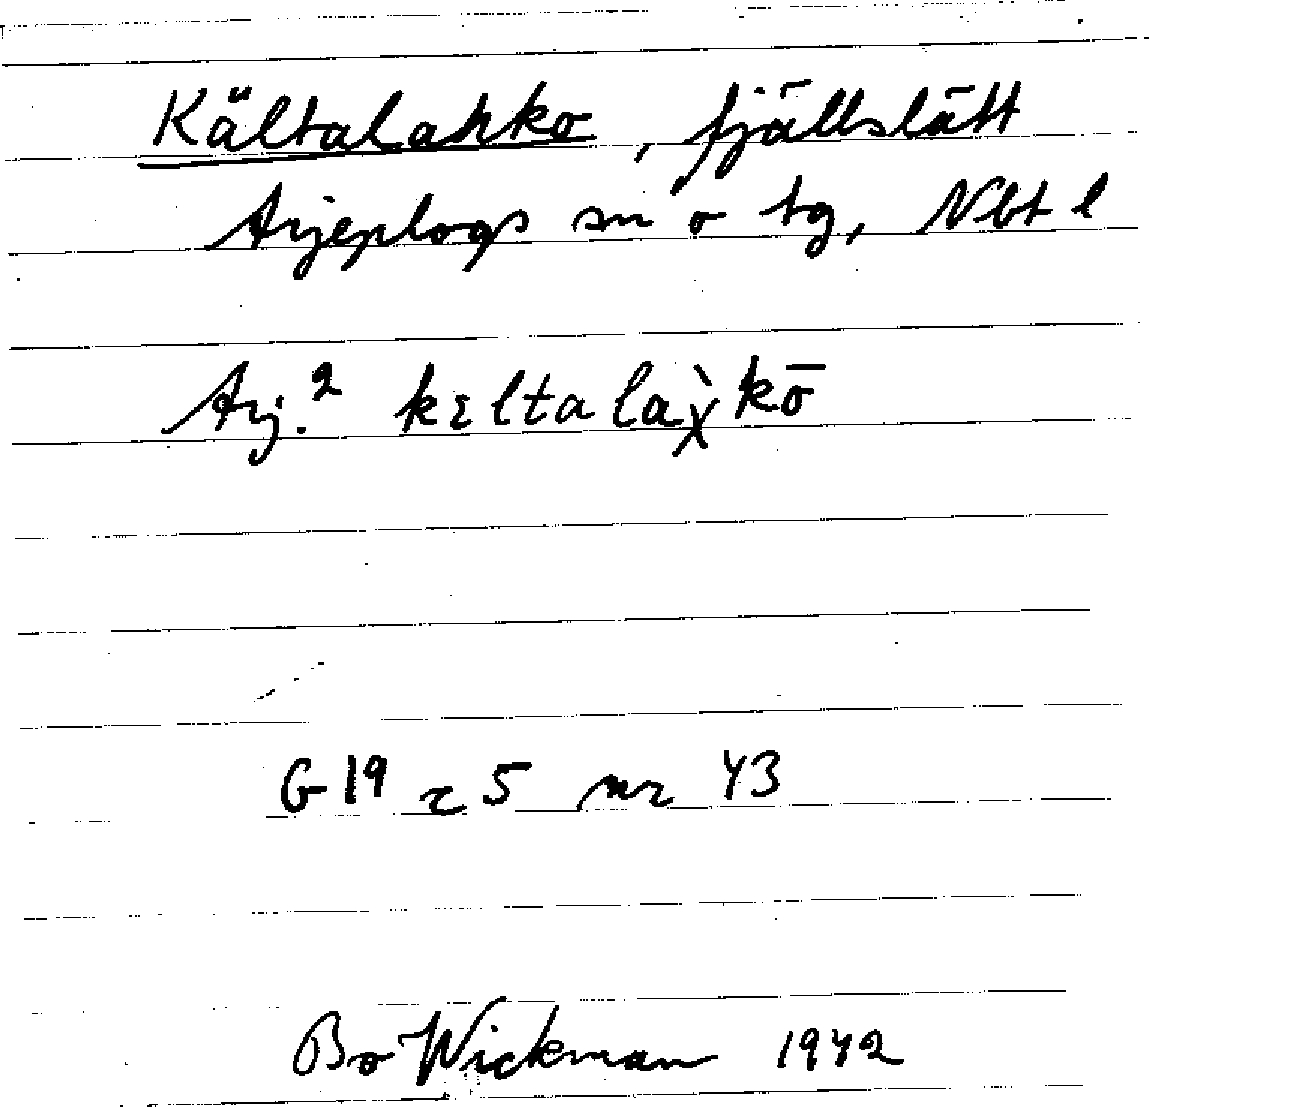 Kältalahko, fjällslätt
Arjeplogs sn o tg, Nbt l
Arj.² kɛltalaχ̀kō
G19 c 5 nr 43
Bo Wickman 1942